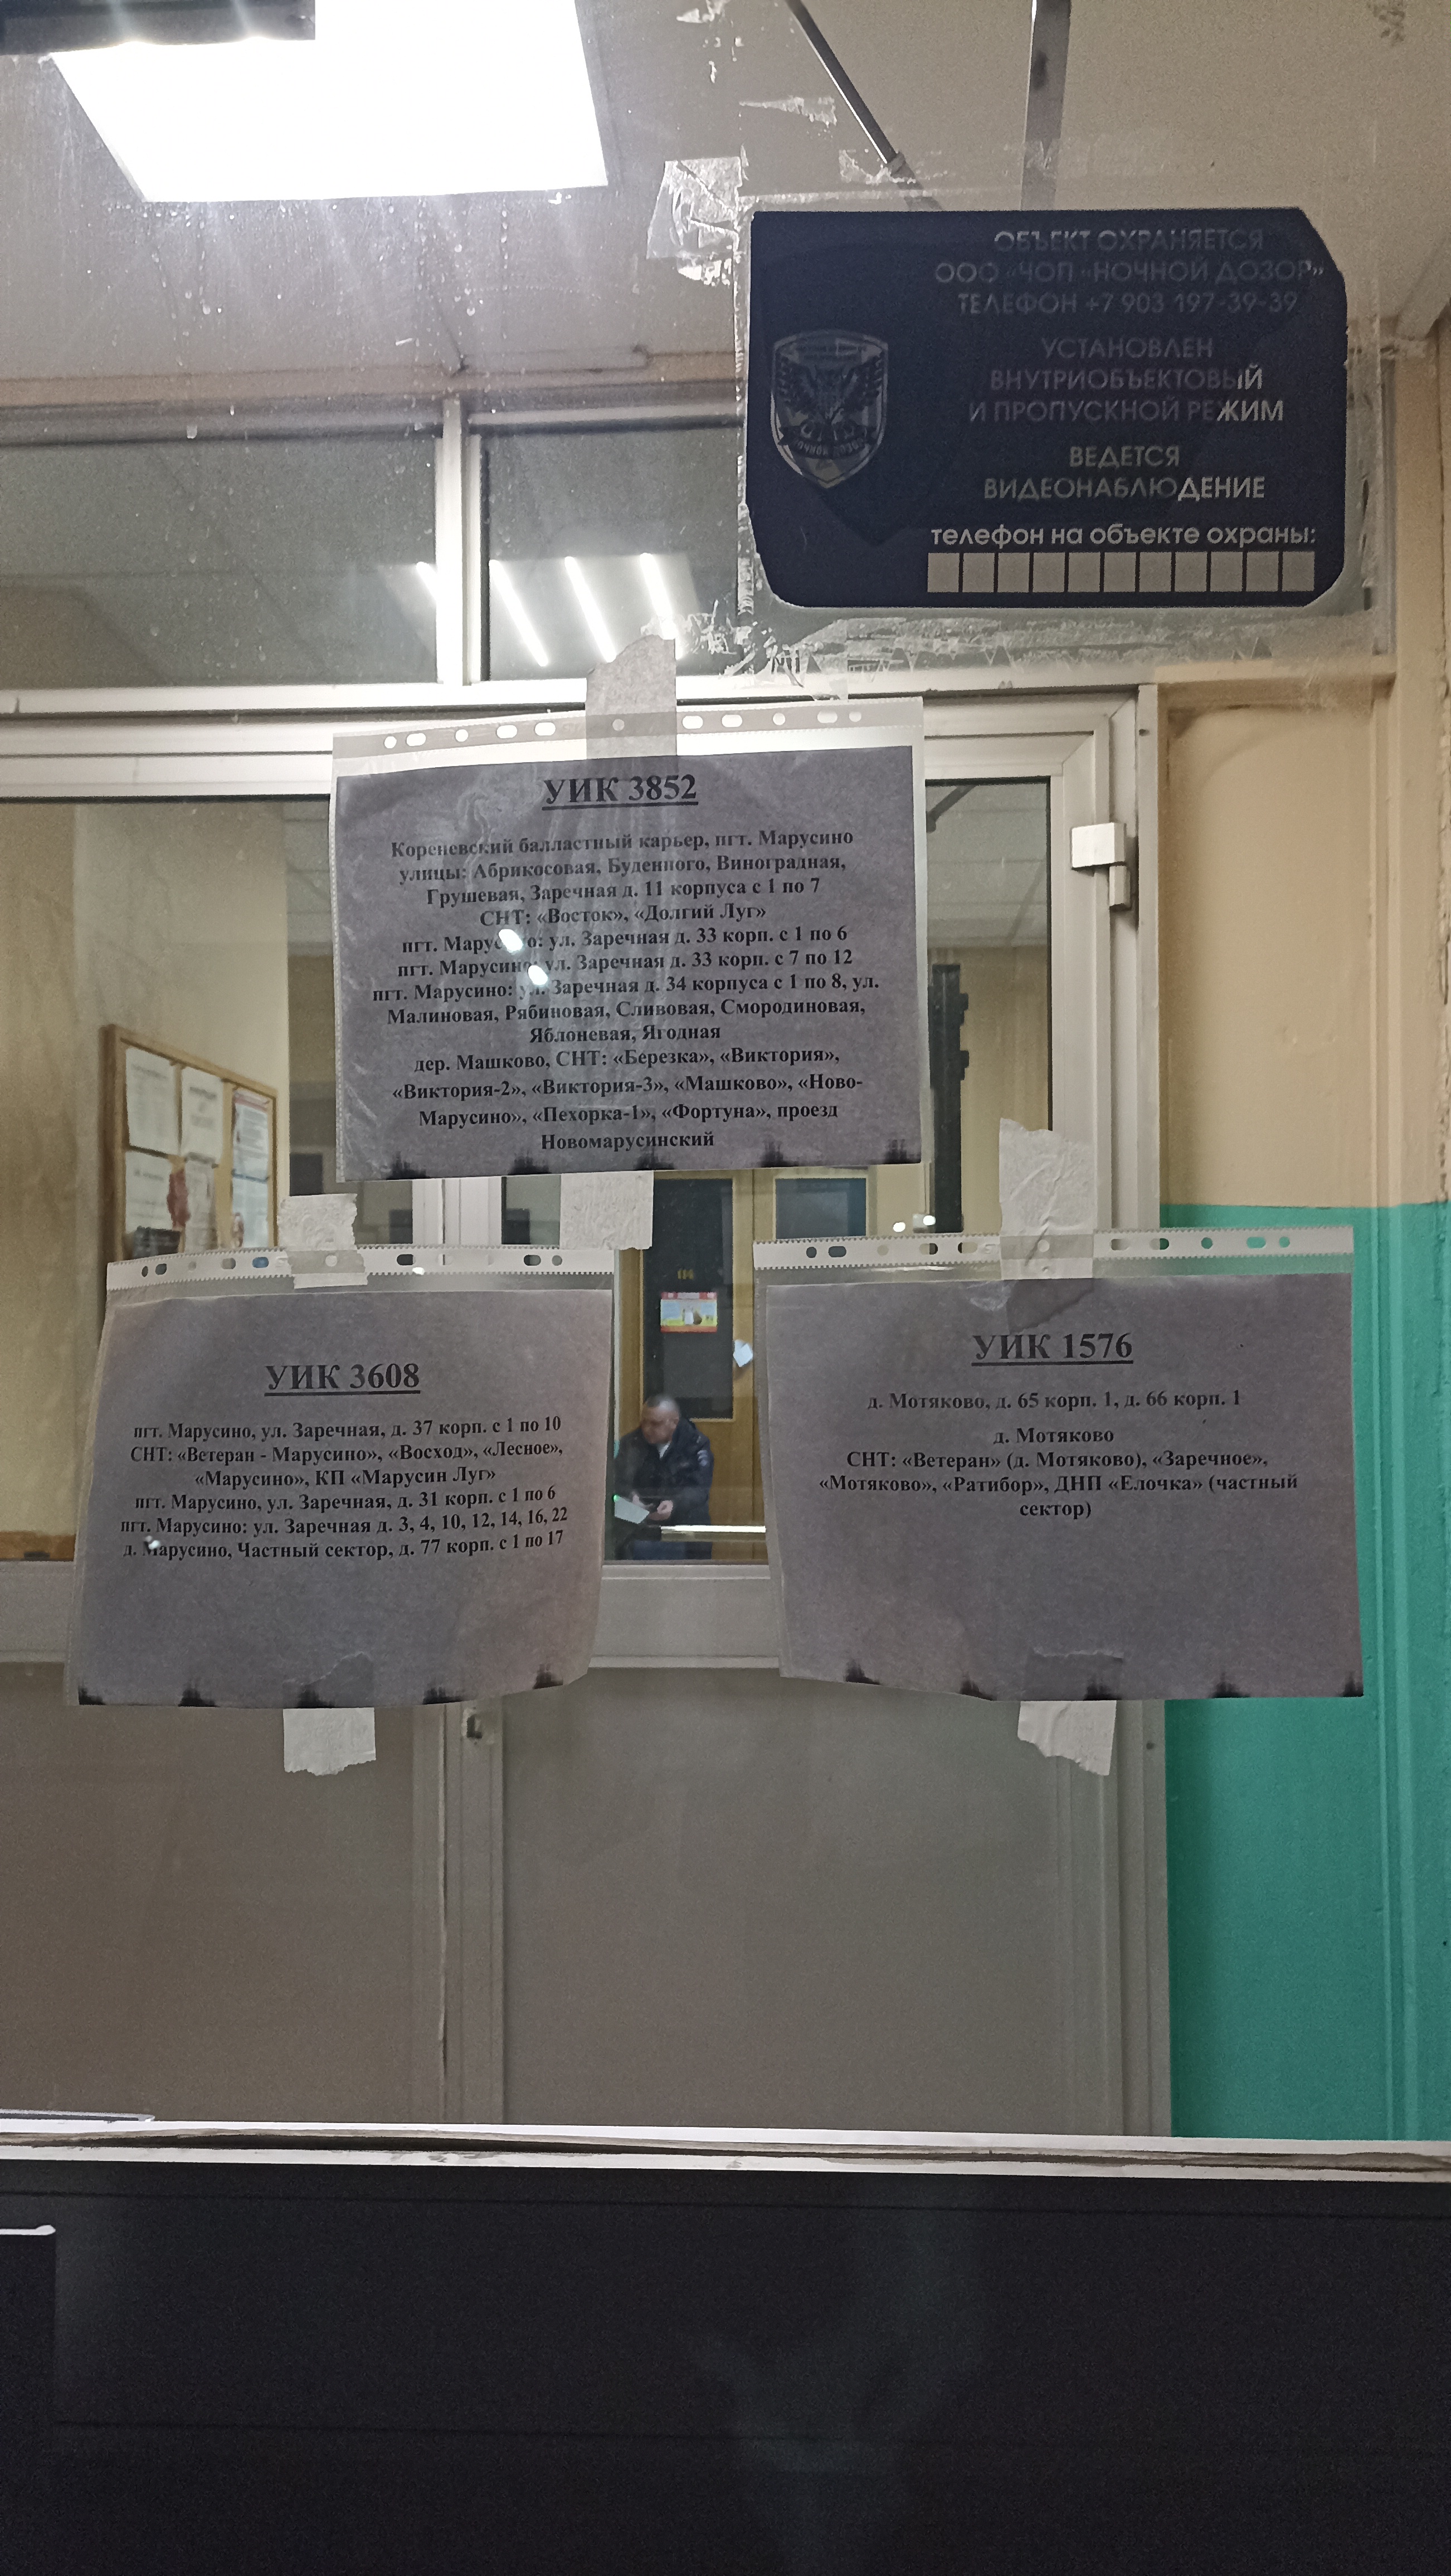 ОБЪЕКТ ОХРАНЯЕТСЯ
ООО «ЧОП «НОЧНОЙ ДОЗОР»
ТЕЛЕФОН +7 903 197-39-39
УСТАНОВЛЕН
ВНУТРИОБЪЕКТОВЫЙ
И ПРОПУСКНОЙ РЕЖИМ
ВЕДЕТСЯ
ВИДЕОНАБЛЮДЕНИЕ
телефон на объекте охраны:
УИК 3852
Кореневский балластный карьер, пгт. Марусино
улицы: Абрикосовая, Буденного, Виноградная,
Грушевая, Заречная д. 11 корпуса с 1 по 7
СНТ: «Восток», «Долгий Луг»
пгт. Марусино: ул. Заречная д. 33 корп. с 1 по 6
пгт. Марусино: ул. Заречная д. 33 корп. с 7 по 12
пгт. Марусино: ул. Заречная д. 34 корпуса с 1 по 8, ул.
Малиновая, Рябиновая, Сливовая, Смородиновая,
Яблоневая, Ягодная
дер. Машково, СНТ: «Березка», «Виктория»,
«Виктория-2», «Виктория-3», «Машково», «Ново-
Марусино», «Пехорка-1», «Фортуна», проезд
Новомарусинский
УИК 3608
пгт. Марусино, ул. Заречная, д. 37 корп. с 1 по 10
СНТ: «Ветеран - Марусино», «Восход», «Лесное»,
«Марусино», КП «Марусин Луг»
пгт. Марусино, ул. Заречная, д. 31 корп. с 1 по 6
пгт. Марусино: ул. Заречная д. 3, 4, 10, 12, 14, 16, 22
д. Марусино, Частный сектор, д. 77 корп. с 1 по 17
УИК 1576
д. Мотяково, д. 65 корп. 1, д. 66 корп. 1
д. Мотяково
СНТ: «Ветеран» (д. Мотяково), «Заречное»,
«Мотяково», «Ратибор», ДНП «Елочка» (частный
сектор)